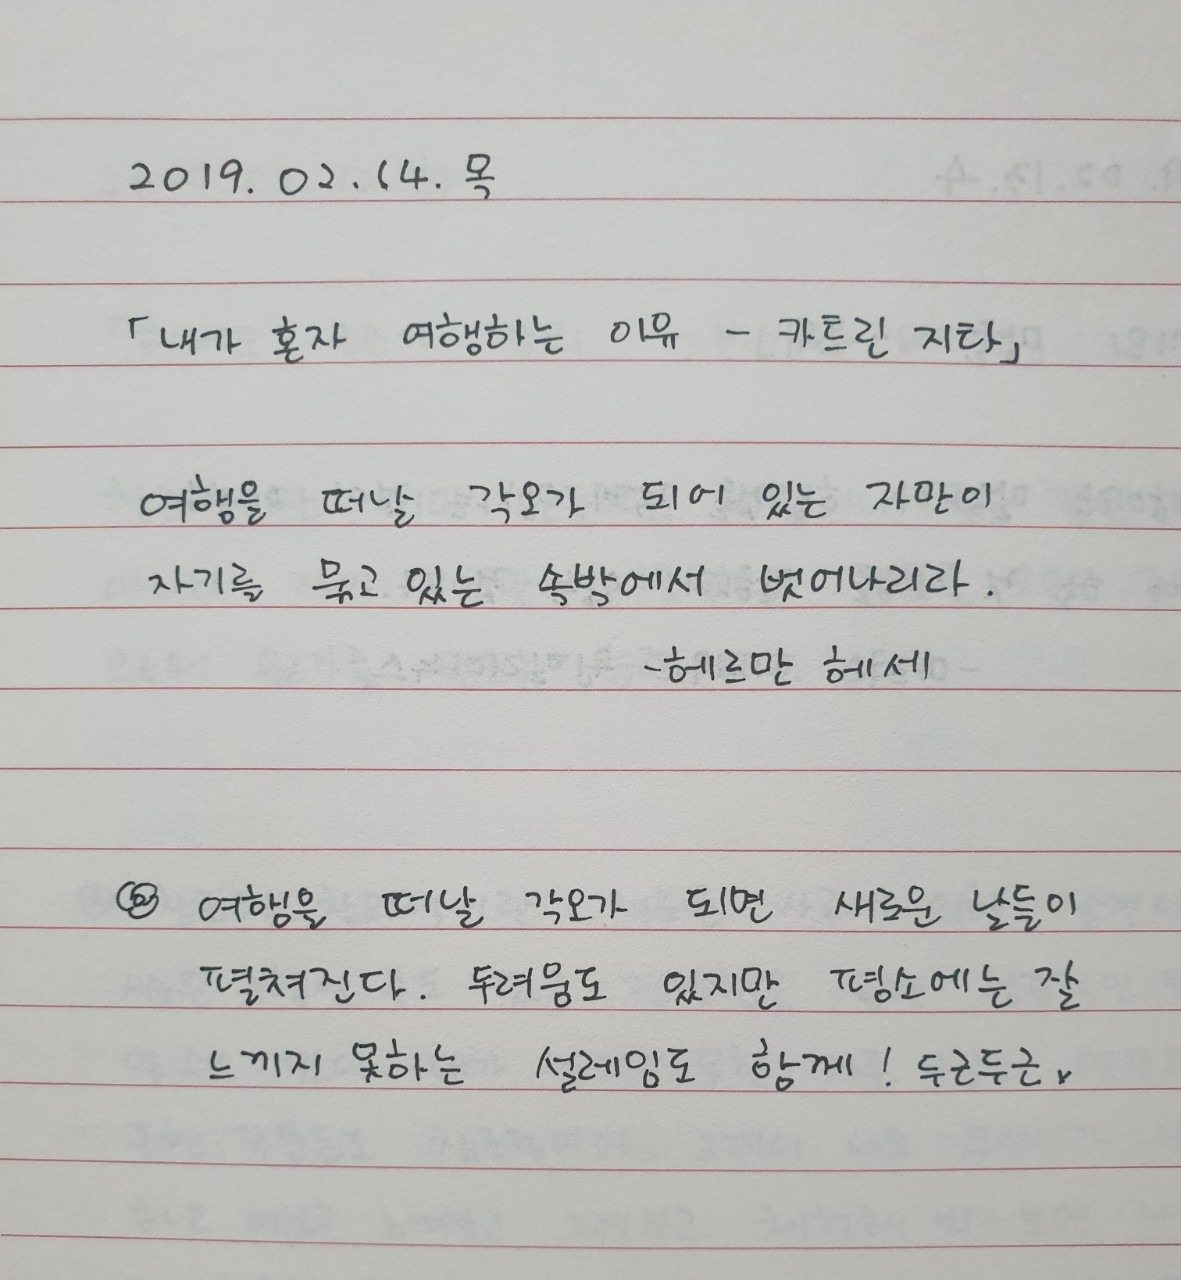 2019. 02. 14. 목
「내가 혼자 여행하는 이유 - 카트린 지타」
여행을 떠날 각오가 되어 있는 자만이
자기를 묶고 있는 속박에서 벗어나리라.
-헤르만 헤세
여행을 떠날 각오가 되면 새로운 날들이
펼쳐진다. 두려움도 있지만 평소에는 잘
느끼지 못하는 설레임도 함께! 두근두근